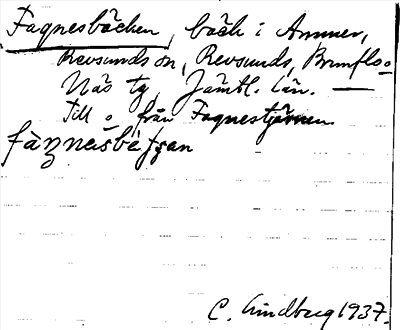 Fagnesbäcken, bäck i Ammer,
Revsunds sn, Revsunds, Brunflo o
Näs tg, Jämtl. län. —
Till o. från Fagnestjärnen.
C. Lindberg 1937.